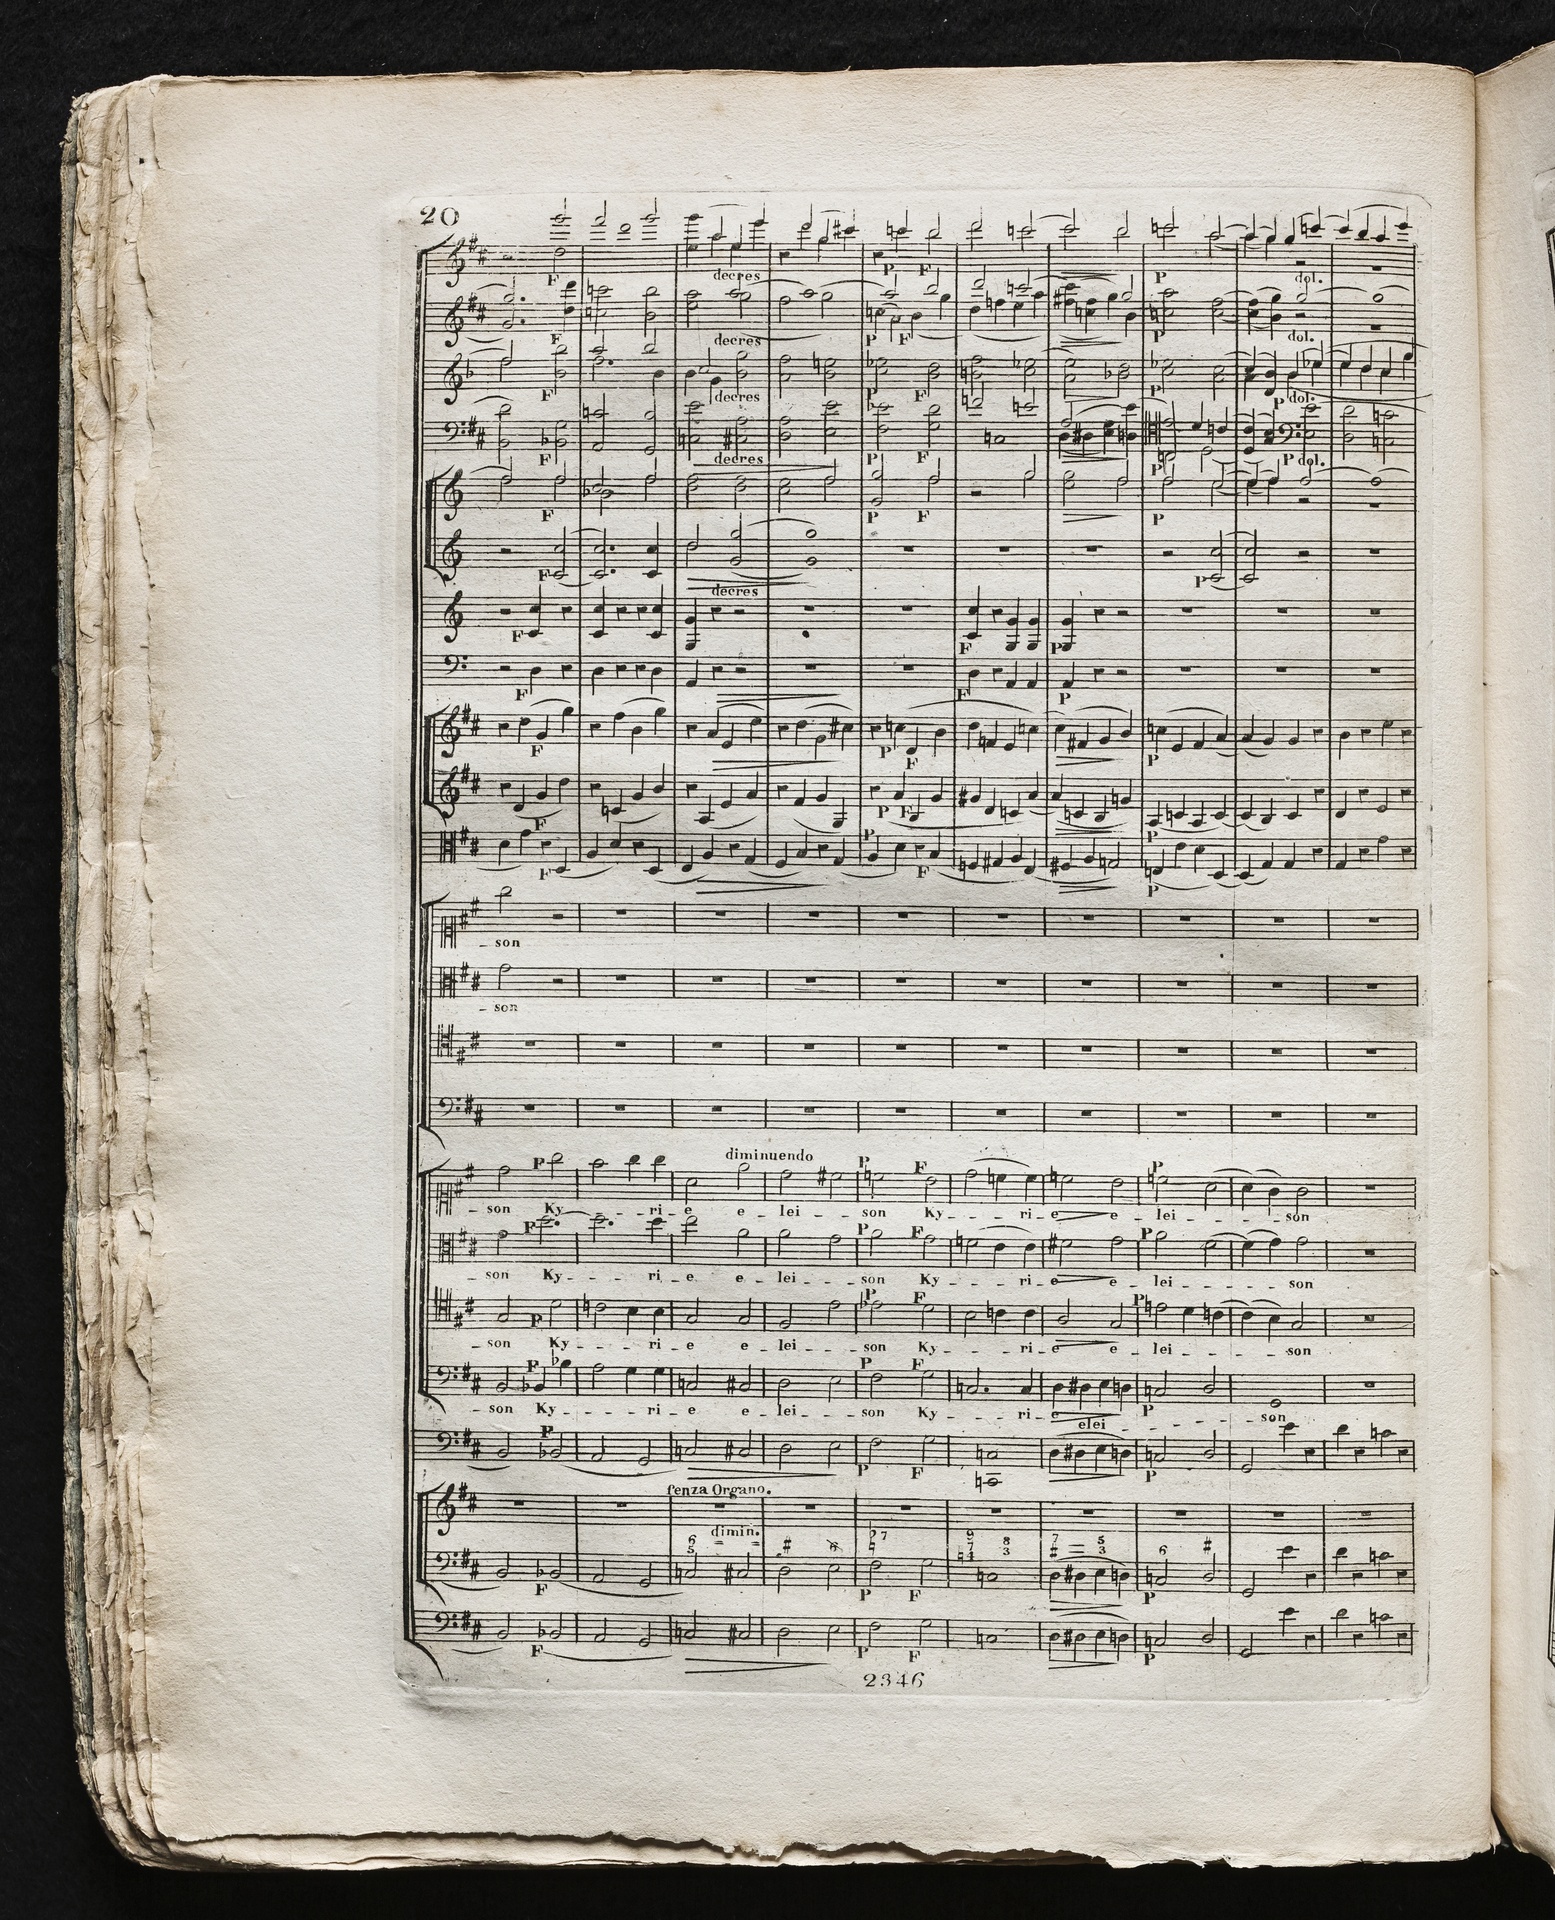 20
F
decres
P F
P
dol.
F
decres
P F
P
dol.
F
decres
P F
P
P dol.
F
decres
P F
P
P dol.
F
P F
P
F
decres
P
F
F
P
F
F
P
F
P F
P
F
P F
P
F
P
F
P
– son
– son
diminuendo
P
P F
P
– son Ky - - - ri - e e - lei - - son Ky - - - ri - e e - lei - - - - son
F
P F
P
– son Ky - - - ri - e e - lei - - son Ky - - - ri - e e - lei - - - - son
P
P F
P
– son Ky - - - ri - e e - lei - - son Ky - - - ri - e e - lei - - - - son
P
P F
P
– son Ky - - - ri - e e - lei - - son Ky - - - ri - e elei - - - - son
P
P F
P
senza Organo.
dimin.
F
P F
P
F
P F
P
2346